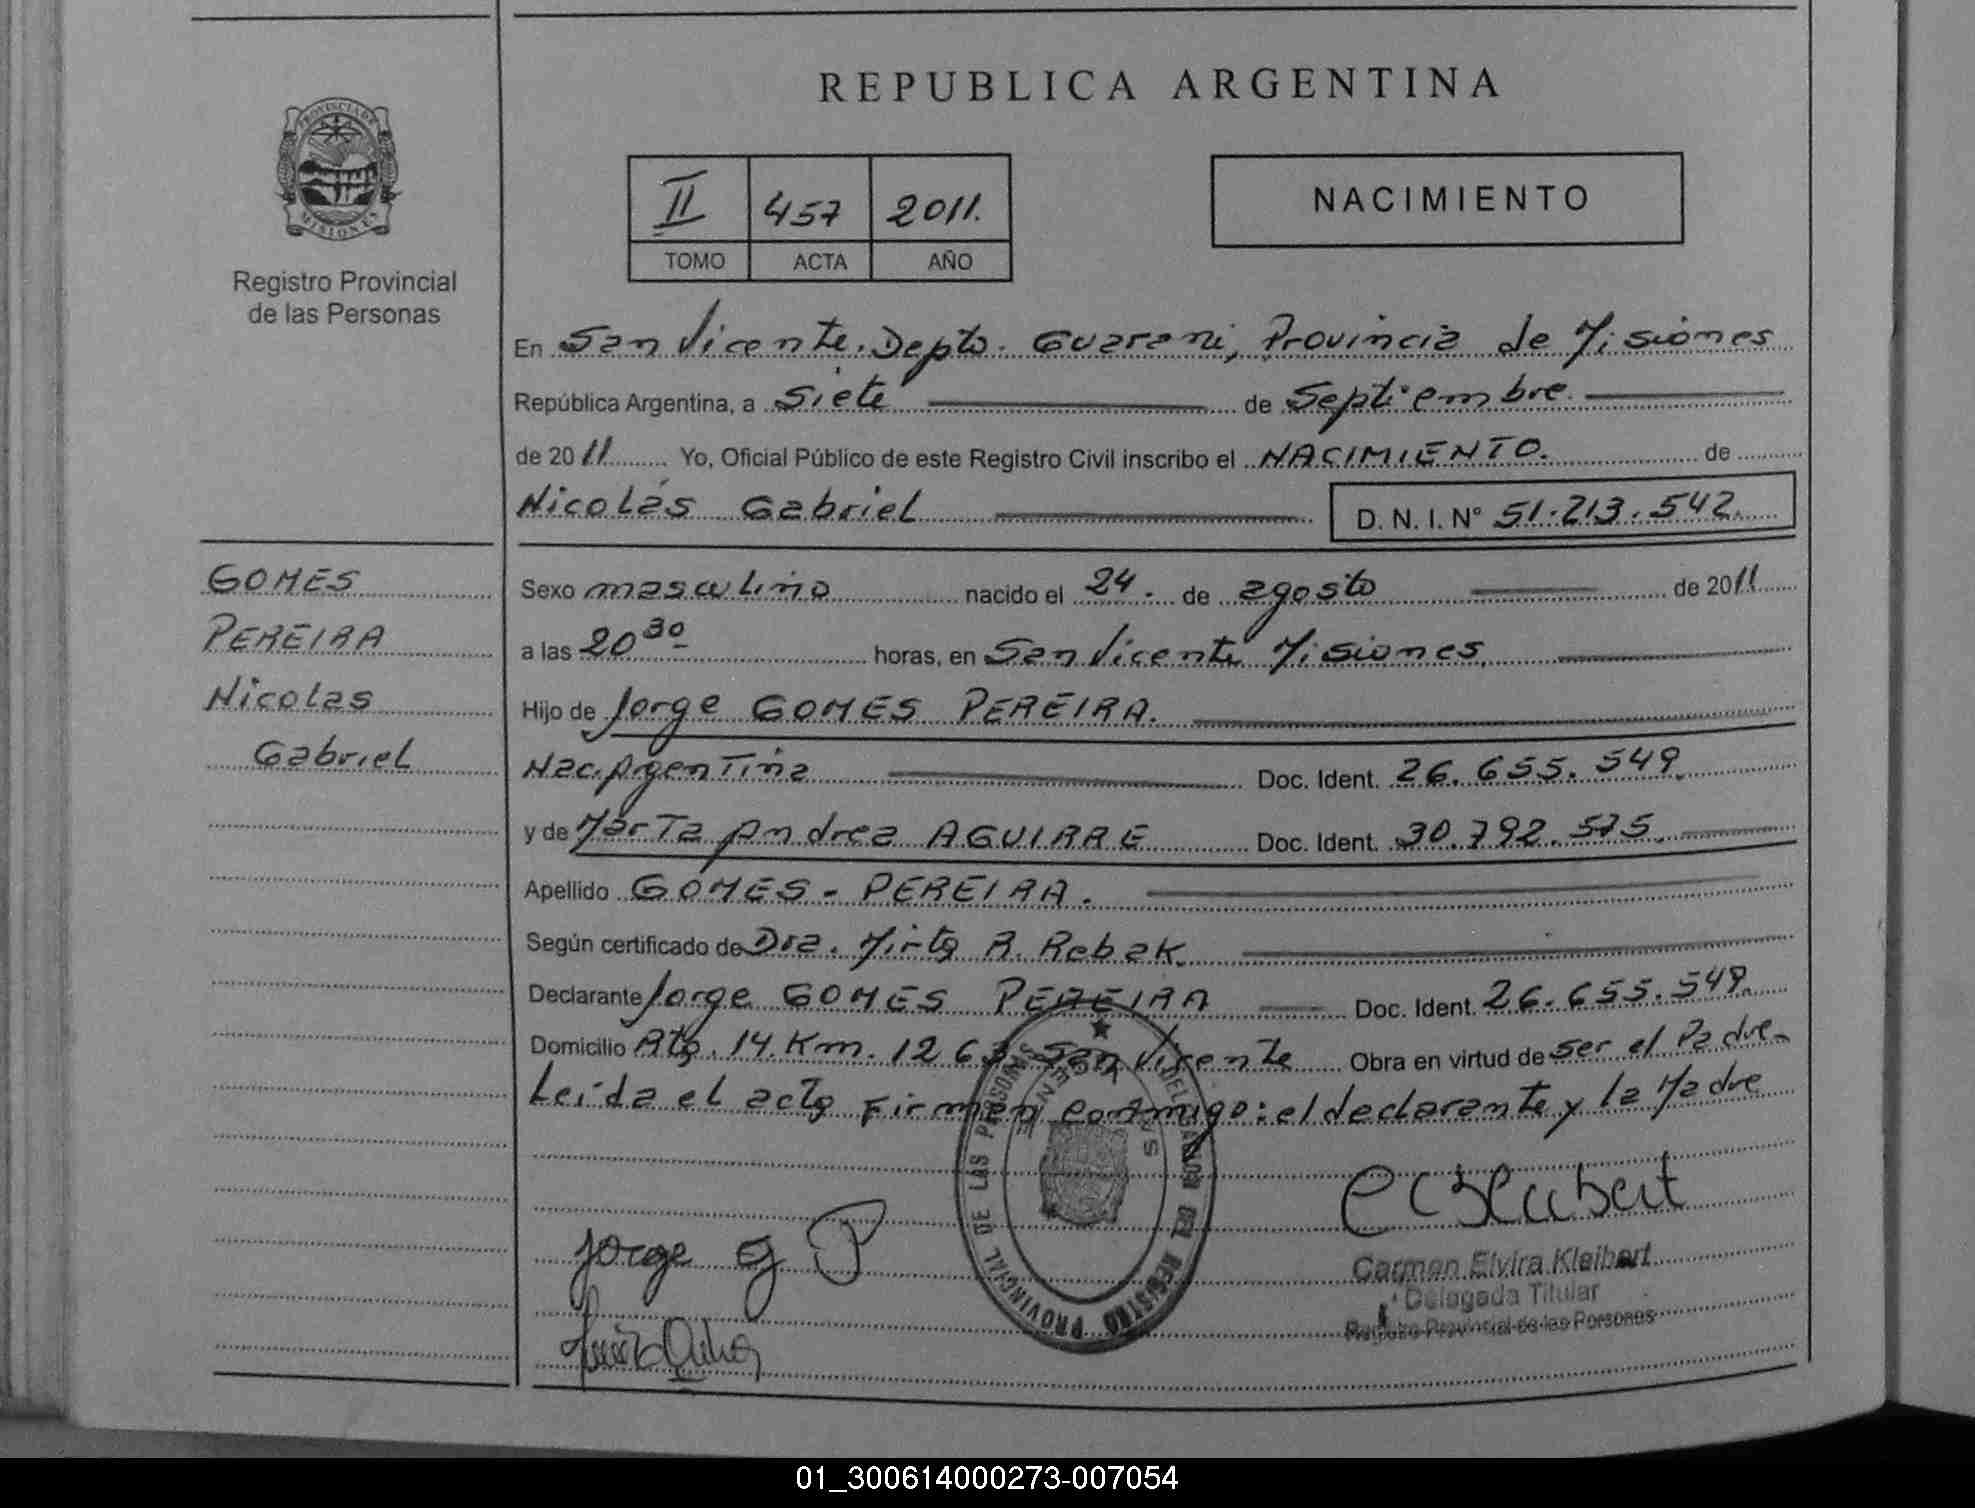 REPUBLICA ARGENTINA
PROVINCIA DE
MISIONES
Registro Provincial
de las Personas
II 457 2011.
TOMO ACTA AÑO
NACIMIENTO
En San Vicente. Depto. Guarani, Provincia de Misiones
República Argentina, a Siete de Septiembre
de 2011 Yo, Oficial Público de este Registro Civil inscribo el NACIMIENTO. de
Nicolás Gabriel D. N. I. N° 51.213.542.
GOMES
PEREIRA
Nicolas
Gabriel
Sexo masculino nacido el 24. de agosto de 2011
a las 20 30 horas, en San Vicente Misiones
Hijo de Jorge GOMES PEREIRA.
Nac. Argentina Doc. Ident. 26.655.549.
y de Marta Andrea AGUIRRE Doc. Ident. 30.792.575.
Apellido GOMES - PEREIRA.
Según certificado de Dra. Mirta R. Rebak.
Declarante Jorge GOMES PEREIRA Doc. Ident. 26.655.549.
Domicilio Rta. 14 Km. 1263 San Vicente Obra en virtud de ser el Padre-
Leida el acta Firman conmigo: el declarante y la Madre
Jorge G P
DELEGACION DEL REGISTRO PROVINCIAL DE LAS PERSONAS
Carmen Elvira Kleibert
Delegada Titular
Registro Provincial de las Personas
01_300614000273-007054